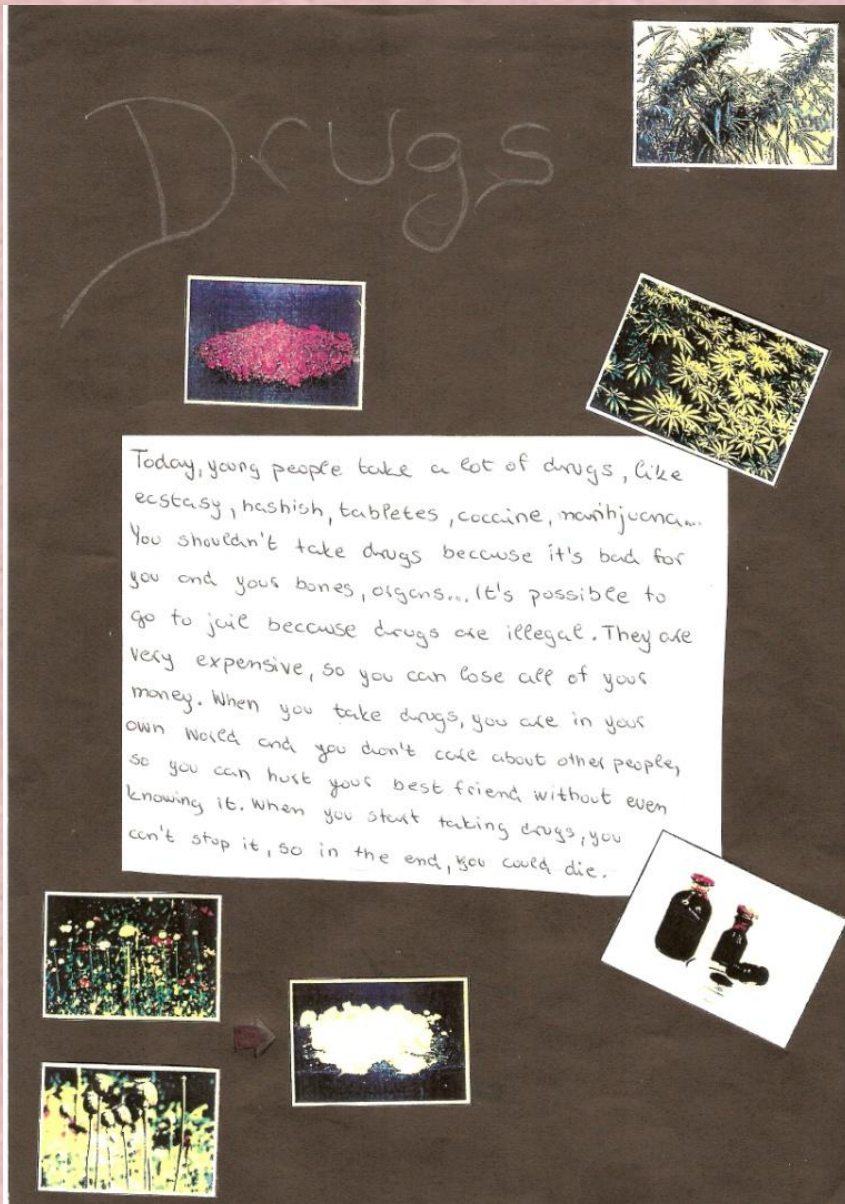 Drugs
Today, young people take a lot of drugs, like
ecstasy, hashish, tabletes, coccaine, marihjuana...
You shouldn't take drugs because it's bad for
you and your bones, organs... It's possible to
go to jail because drugs are illegal. They are
very expensive, so you can lose all of your
money. When you take drugs, you are in your
own world and you don't care about other people,
so you can hurt your best friend without even
knowing it. When you start taking drugs, you
can't stop it, so in the end, you could die.